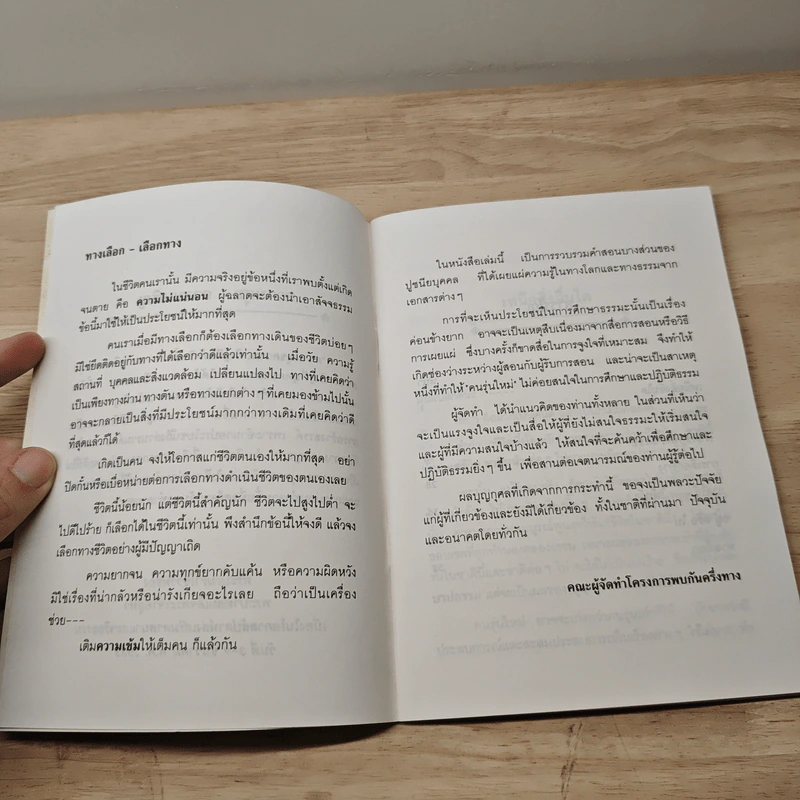 ทางเลือก – เลือกทาง
ในชีวิตคนเรานั้น มีความจริงอยู่ข้อหนึ่งที่เราพบตั้งแต่เกิด
จนตาย คือ ความไม่แน่นอน ผู้ฉลาดจะต้องนำเอาสัจจธรรม
ข้อนี้มาใช้ให้เป็นประโยชน์ให้มากที่สุด
คนเราเมื่อมีทางเลือกก็ต้องเลือกทางเดินของชีวิตบ่อยๆ
มิใช่ยึดติดอยู่กับทางที่ได้เลือกว่าดีแล้วเท่านั้น เมื่อวัย ความรู้
สถานที่ บุคคลและสิ่งแวดล้อม เปลี่ยนแปลงไป ทางที่เคยคิดว่า
เป็นเพียงทางผ่าน ทางตัน หรือทางแยกต่างๆ ที่เคยมองข้ามไปนั้น
อาจจะกลายเป็นสิ่งที่มีประโยชน์มากกว่าทางเดิมที่เคยคิดว่าดี
ที่สุดแล้วก็ได้
เกิดเป็นคน จงให้โอกาสแก่ชีวิตตนเองให้มากที่สุด อย่า
ปิดกั้นหรือเบื่อหน่ายต่อการเลือกทางดำเนินชีวิตของตนเองเลย
ชีวิตนี้น้อยนัก แต่ชีวิตนี้สำคัญนัก ชีวิตจะไปสูงไปต่ำ จะ
ไปดีไปร้าย ก็เลือกได้ในชีวิตนี้เท่านั้น พึงสำนึกข้อนี้ให้จงดี แล้วจง
เลือกทางชีวิตอย่างผู้มีปัญญาเถิด
ความยากจน ความทุกข์ยากคับแค้น หรือความผิดหวัง
มิใช่เรื่องที่น่ากลัวหรือน่ารังเกียจอะไรเลย ถือว่าเป็นเครื่อง
ช่วย---
เติมความเข้มให้เต็มคน ก็แล้วกัน
ในหนังสือเล่มนี้ เป็นการรวบรวมคำสอนบางส่วนของ
ปูชนียบุคคล ที่ได้เผยแผ่ความรู้ในทางโลกและทางธรรมจาก
เอกสารต่างๆ
การที่จะเห็นประโยชน์ในการศึกษาธรรมะนั้นเป็นเรื่อง
ค่อนข้างยาก อาจจะเป็นเหตุสืบเนื่องมาจากสื่อการสอนหรือวิธี
การเผยแผ่ ซึ่งบางครั้งก็ขาดสื่อในการจูงใจที่เหมาะสม จึงทำให้
เกิดช่องว่างระหว่างผู้สอนกับผู้รับการสอน และน่าจะเป็นสาเหตุ
หนึ่งที่ทำให้ 'คนรุ่นใหม่' ไม่ค่อยสนใจในการศึกษาและปฏิบัติธรรม
ผู้จัดทำ ได้นำแนวคิดของท่านทั้งหลาย ในส่วนที่เห็นว่า
จะเป็นแรงจูงใจและเป็นสื่อให้ผู้ที่ยังไม่สนใจธรรมะให้เริ่มสนใจ
และผู้ที่มีความสนใจบ้างแล้ว ให้สนใจที่จะค้นคว้าเพื่อศึกษาและ
ปฏิบัติธรรมยิ่งๆ ขึ้น เพื่อสานต่อเจตนารมณ์ของท่านผู้รู้ต่อไป
ผลบุญกุศลที่เกิดจากการกระทำนี้ ขอจงเป็นพลวะปัจจัย
แก่ผู้ที่เกี่ยวข้องและยังมิได้เกี่ยวข้อง ทั้งในชาติที่ผ่านมา ปัจจุบัน
และอนาคตโดยทั่วกัน
คณะผู้จัดทำโครงการพบกันครึ่งทาง